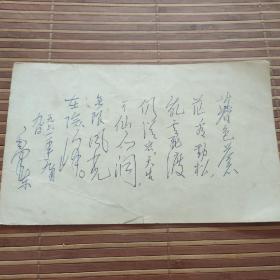 暮色蒼
茫看劲松
乱云飛渡
仍從容天生
一个仙人洞
無限風光
在險峰
一九六一年九月
九日
毛泽东